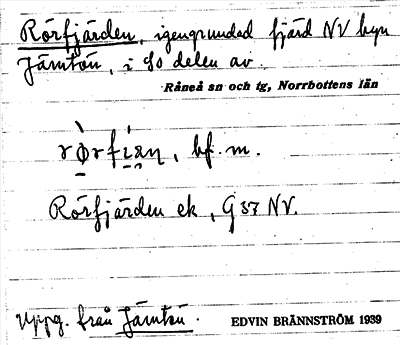 Rörfjärden, igengrundad fjärd NV byn
Jämtön, i SO delen av
Råneå sn och tg, Norrbottens län
bf. m.
Rörfjärden ek, G 37 NV.
Uppg. från Jämtön.
EDVIN BRÄNNSTRÖM 1939